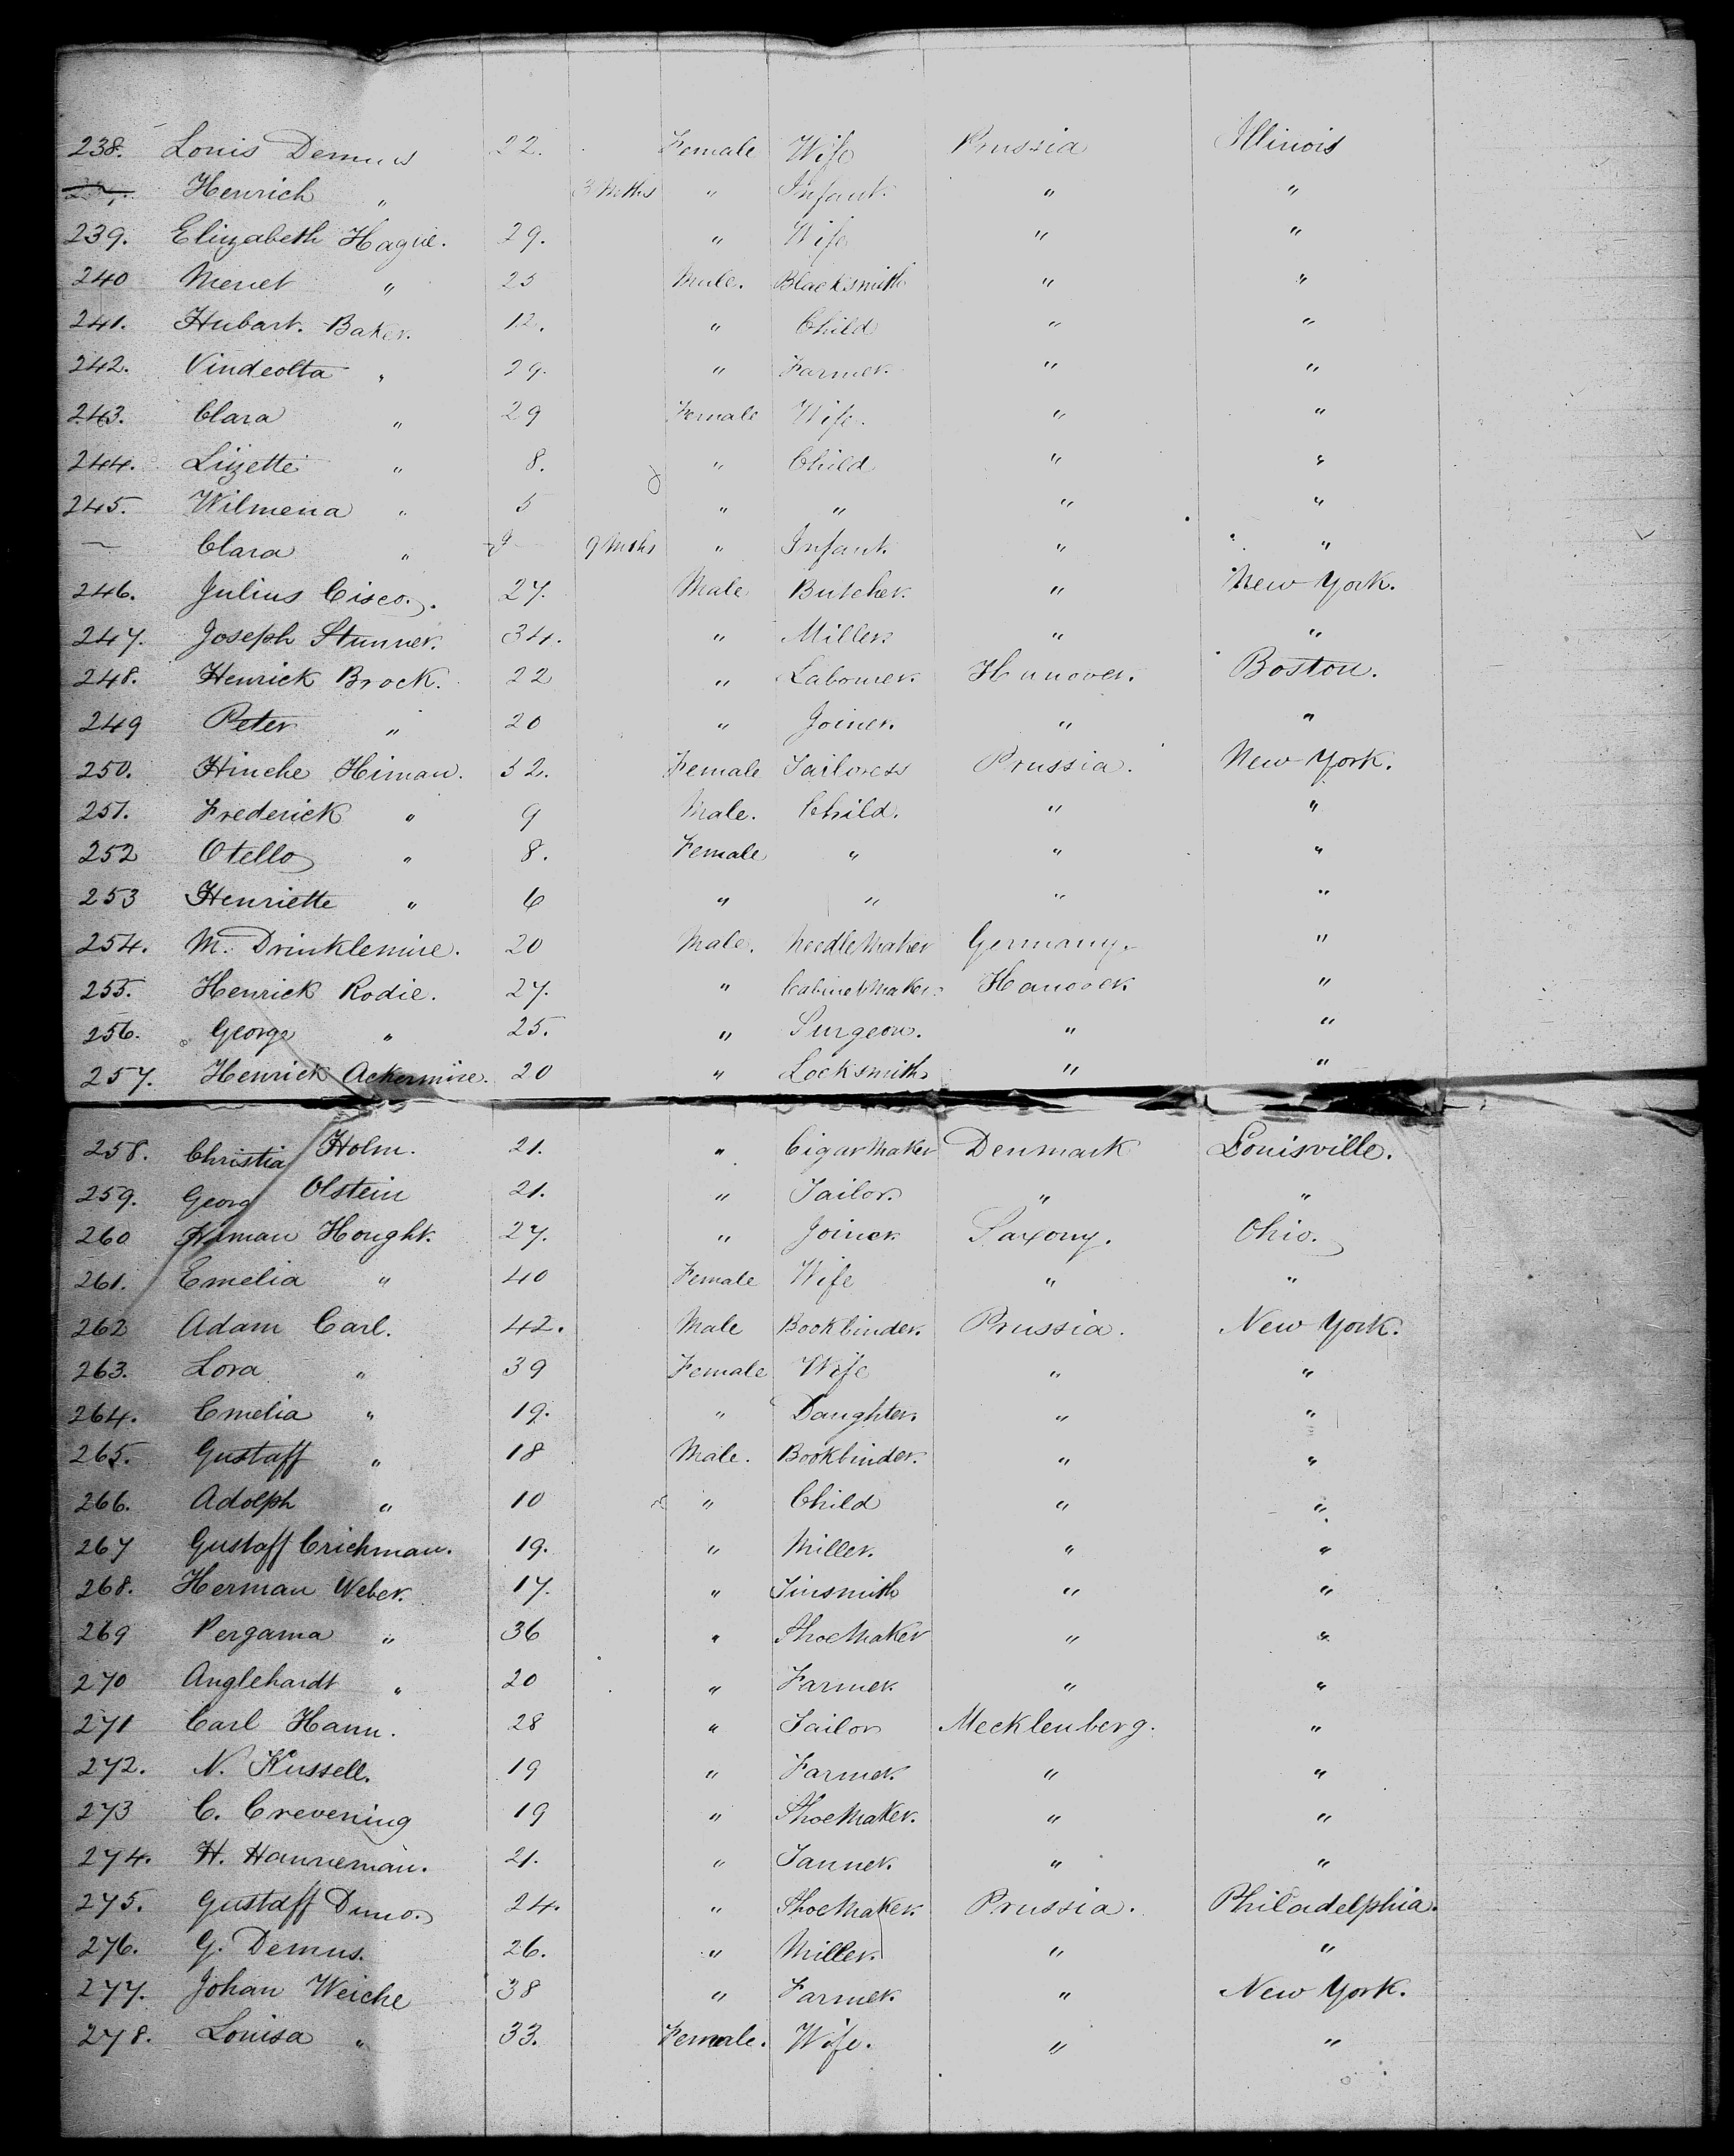 238. Louis Demus 22. Female Wife Prussia Illinois
Henrich " 3 Mths " Infant. " "
239. Elizabeth Hague. 29. " Wife " "
240 Meriet " 25 Male. Blacksmith " "
241. Hubart. Baker. 12. " Child " "
242. Vindeolta " 29. " Farmer. " "
243. Clara " 29 Female Wife. " "
244. Lizette " 8. " Child " "
245. Wilmena " 5 " " " "
— Clara " 9 Mths " Infant. " "
246. Julius Cisco. 27. Male Butcher. " New York.
247. Joseph Stunner. 34. " Miller " "
248. Henrick Brock. 22 " Labourer. Hanover. Boston.
249 Peter " 20 " Joiner. " "
250. Hinche Himan. 32. Female Tailoress Prussia. New York.
251. Frederick " 9 Male. Child. " "
252 Otello " 8. Female " " "
253 Henriette " 6 " " " "
254. M. Drinklemire. 20 Male. Needle Maker Germany. "
255. Henrick Rodie. 27. " Cabinet Maker. Hanover "
256. George " 25. " Surgeon. " "
257. Henrick Ackermire. 20 " Locksmith " "
258. Christia Holm. 21. " Cigar Maker Denmark Louisville.
259. Georg Olstein 21. " Tailor " "
260 Haman Hought. 27. " Joiner Saxony. Ohio.
261. Emelia " 40 Female Wife " "
262 Adam Carl. 42. Male Bookbinder. Prussia. New York.
263. Lora " 39 Female Wife " "
264. Emelia " 19. " Daughter. " "
265. Gustaff " 18 Male. Bookbinder. " "
266. Adolph " 10 " Child " "
267 Gustaff Crichman. 19. " Miller. " "
268. Herman Weber. 17. " Tinsmith " "
269 Pergama " 36 " Shoe Maker " "
270 Anglehardt " 20 " Farmer. " "
271 Carl Hann. 28 " Tailor Mecklenberg. "
272. N. Kussell. 19 " Farmer. " "
273 C. Crevening 19 " Shoe Maker. " "
274. H. Hanneman. 21. " Tanner. " "
275. Gustaff Duno. 24. " Shoe Maker. Prussia. Philadelphia.
276. G. Demus. 26. " Miller. " "
277. Johan Weiche 38 " Farmer. " New York.
278. Louisa " 33. Female. Wife. " "